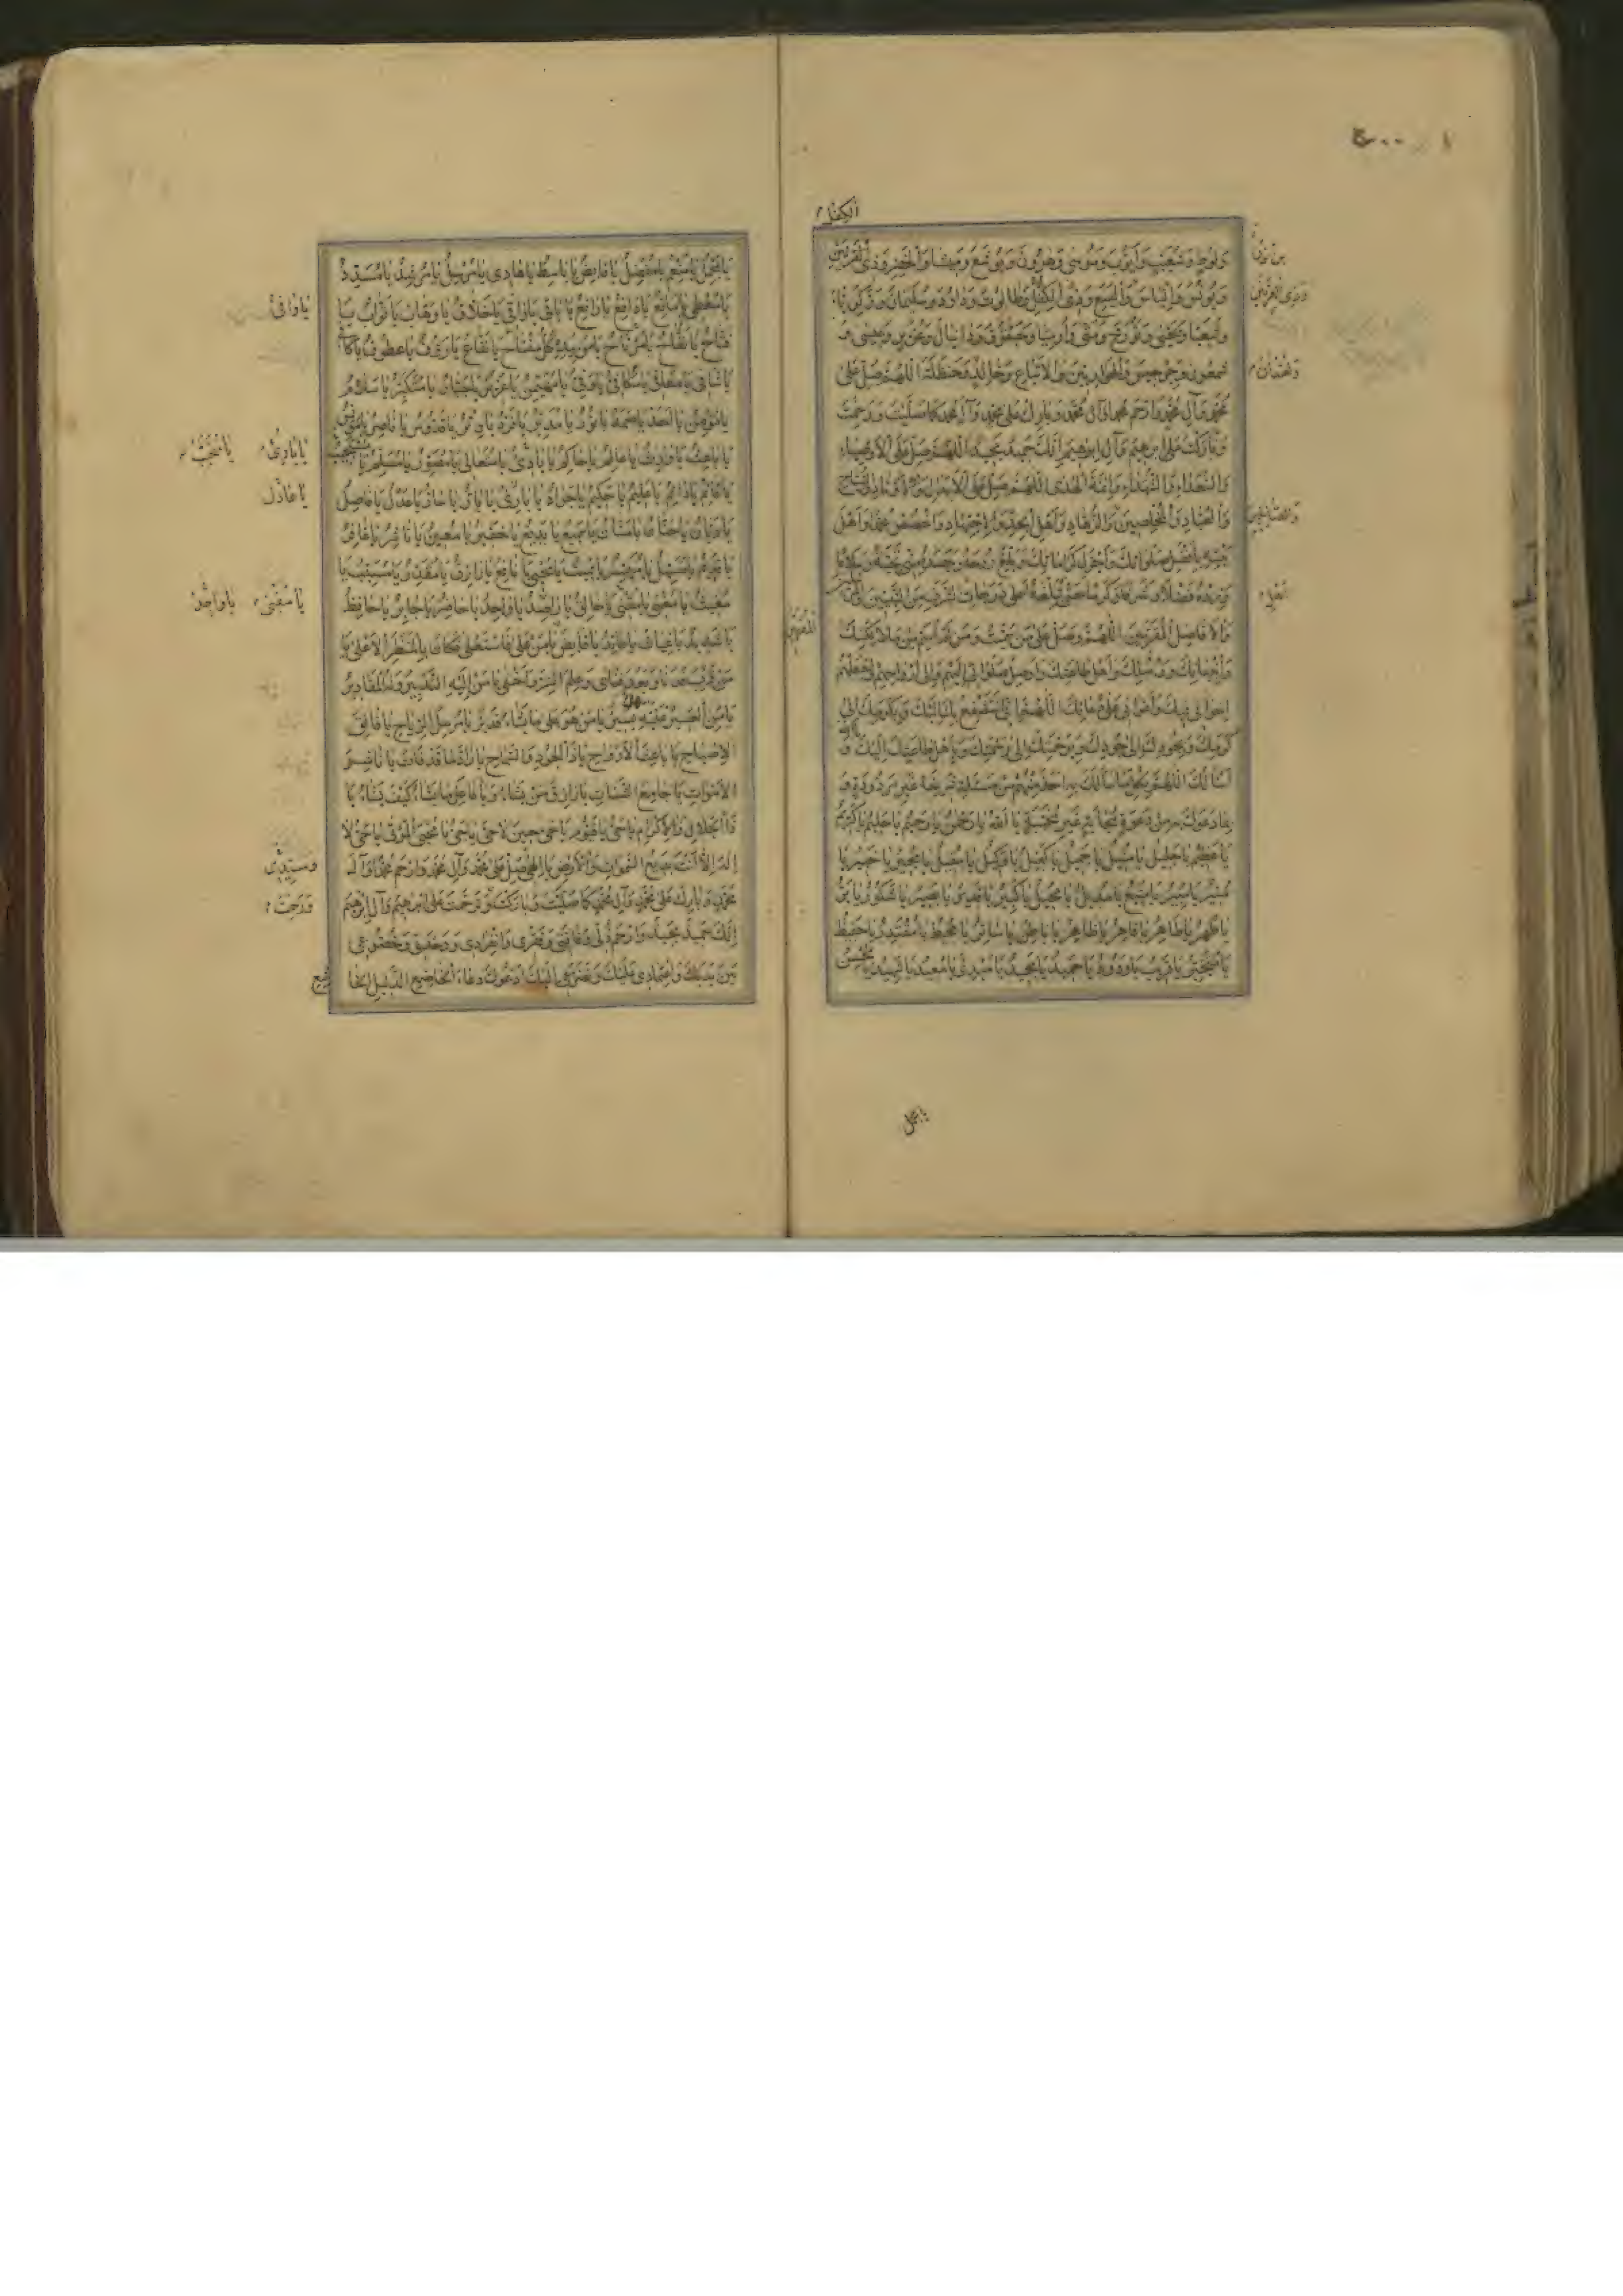 الكفل
وَلُوطٍ وَشُعَيْبٍ وَأَيُّوبَ وَمُوسىٰ وَهٰرُونَ وَيُوشَعَ وَمِيشَا وَالْخِضْرِ وَذِي الْقَرْنَيْنِ
وَيُونُسَ وَإِلْيَاسَ وَالْيَسَعَ وَذِي الْكِفْلِ وَطَالُوتَ وَدَاوُدَ وَسُلَيْمَانَ وَزَكَرِيَّا
وَشَعْيَا وَيَحْيىٰ وَتُورَخَ وَمَتّىٰ وَأَرْمِيَا وَحَيْقُوقَ وَدَانِيَالَ وَعُزَيْرٍ وَعِيسىٰ وَ
شَمْعُونَ وَجِرْجِيسَ وَالْحَوَارِيِّينَ وَالْأَتْبَاعِ وَخَالِدٍ وَحَنْظَلَةَ اللّٰهُمَّ صَلِّ عَلىٰ
مُحَمَّدٍ وَآلِ مُحَمَّدٍ وَارْحَمْ مُحَمَّدًا وَآلَ مُحَمَّدٍ وَبَارِكْ عَلىٰ مُحَمَّدٍ وَآلِ مُحَمَّدٍ كَمَا صَلَّيْتَ وَرَحِمْتَ
وَبَارَكْتَ عَلىٰ إِبْرٰهِيمَ وَآلِ إِبْرٰهِيمَ إِنَّكَ حَمِيدٌ مَجِيدٌ اللّٰهُمَّ صَلِّ عَلَى الْأَوْصِيَاءِ
وَالسُّعَدَاءِ وَالشُّهَدَاءِ وَأَئِمَّةِ الْهُدىٰ اللّٰهُمَّ صَلِّ عَلَى الْأَبْدَالِ وَالْأَوْتَادِ وَالسُّيَّاحِ
وَالْعُبَّادِ وَالْمُخْلِصِينَ وَالزُّهَّادِ وَأَهْلِ الْجِدِّ وَالْاِجْتِهَادِ وَاخْصُصْ مُحَمَّدًا وَأَهْلَ
بَيْتِهِ بِأَفْضَلِ صَلَوَاتِكَ وَأَجْزَلِ كَرَامَاتِكَ وَبَلِّغْ رُوحَهُ وَجَسَدَهُ مِنِّي تَحِيَّةً وَسَلَامًا
وَزِدْهُ فَضْلًا وَشَرَفًا وَكَرَمًا حَتّىٰ تُبَلِّغَهُ أَعْلىٰ دَرَجَاتِ الشَّرَفِ مِنَ النَّبِيِّينَ
وَالْأَفَاضِلِ الْمُقَرَّبِينَ اللّٰهُمَّ وَصَلِّ عَلىٰ مَنْ سَمَّيْتُ وَمَنْ لَمْ أُسَمِّ مِنْ مَلَائِكَتِكَ
وَأَنْبِيَائِكَ وَرُسُلِكَ وَأَهْلِ طَاعَتِكَ وَأَوْصِلْ صَلَوَاتِي إِلَيْهِمْ وَإِلىٰ أَرْوَاحِهِمْ وَاجْعَلْهُمْ
إِخْوَانِي فِيكَ وَأَعْوَانِي عَلىٰ دُعَائِكَ اللّٰهُمَّ إِنِّي أَسْتَشْفِعُ بِكَ إِلَيْكَ وَبِكَرَمِكَ إِلىٰ
كَرَمِكَ وَبِجُودِكَ إِلىٰ جُودِكَ وَبِرَحْمَتِكَ إِلىٰ رَحْمَتِكَ وَبِأَهْلِ طَاعَتِكَ إِلَيْكَ وَ
أَسْأَلُكَ اللّٰهُمَّ بِكُلِّ مَا سَأَلَكَ بِهِ أَحَدٌ مِنْهُمْ مِنْ مَسْأَلَةٍ شَرِيفَةٍ غَيْرِ مَرْدُودَةٍ وَ
بِمَا دَعَوْكَ بِهِ مِنْ دَعْوَةٍ مُجَابَةٍ غَيْرِ مُخَيَّبَةٍ يَا اَللّٰهُ يَا رَحْمٰنُ يَا رَحِيمُ يَا حَلِيمُ يَا كَرِيمُ
يَا عَظِيمُ يَا جَلِيلُ يَا مُنِيلُ يَا جَمِيلُ يَا كَفِيلُ يَا وَكِيلُ يَا مُقِيلُ يَا مُجِيرُ يَا خَبِيرُ يَا
مُنِيرُ يَا مُبِيرُ يَا مَنِيعُ يَا مُدِيلُ يَا مُحِيلُ يَا كَبِيرُ يَا قَدِيرُ يَا بَصِيرُ يَا شَكُورُ يَا بَرُّ
يَا طُهْرُ يَا طَاهِرُ يَا قَاهِرُ يَا ظَاهِرُ يَا بَاطِنُ يَا سَاتِرُ يَا مُحِيطُ يَا مُقْتَدِرُ يَا حَفِيظُ
يَا مُتَجَبِّرُ يَا قَرِيبُ يَا وَدُودُ يَا حَمِيدُ يَا مَجِيدُ يَا مُبْدِئُ يَا مُعِيدُ يَا شَهِيدُ يَا مُحْسِنُ
بن نون
وذي القرنين
ولقمان
المقربين
يا مجمل
يَا مُجْمِلُ يَا مُنْعِمُ يَا مُفْضِلُ يَا قَابِضُ يَا بَاسِطُ يَا هَادِي يَا مُرْسِلُ يَا مُرْشِدُ يَا مُسَدِّدُ
يَا مُعْطِي يَا مَانِعُ يَا دَافِعُ يَا رَافِعُ يَا بَاقِي يَا وَاقِي يَا خَلَّاقُ يَا وَهَّابُ يَا تَوَّابُ يَا
فَتَّاحُ يَا نَفَّاحُ يَا مُرْتَاحُ يَا مَنْ بِيَدِهِ كُلُّ مِفْتَاحٍ يَا نَفَّاعُ يَا رَؤُفُ يَا عَطُوفُ يَا كَافِي
يَا شَافِي يَا مُعَافِي يَا مُكَافِي يَا وَفِيُّ يَا مُهَيْمِنُ يَا عَزِيزُ يَا جَبَّارُ يَا مُتَكَبِّرُ يَا سَلَامُ
يَا مُؤْمِنُ يَا أَحَدُ يَا صَمَدُ يَا نُورُ يَا مُدَبِّرُ يَا فَرْدُ يَا وِتْرُ يَا قُدُّوسُ يَا نَاصِرُ يَا مُونِسُ
يَا بَاعِثُ يَا وَارِثُ يَا عَالِمُ يَا حَاكِمُ يَا بَادِئُ يَا مُتَعَالِي يَا مُصَوِّرُ يَا مُسَلِّمُ يَا مُتَحَبِّبُ
يَا قَائِمُ يَا دَائِمُ يَا عَلِيمُ يَا حَكِيمُ يَا جَوَادُ يَا بَارِئُ يَا بَارُّ يَا سَارُّ يَا عَدْلُ يَا فَاصِلُ
يَا دَيَّانُ يَا حَنَّانُ يَا مَنَّانُ يَا سَمِيعُ يَا بَدِيعُ يَا خَفِيرُ يَا مُعِينُ يَا نَاشِرُ يَا غَافِرُ
يَا قَدِيمُ يَا مُسَهِّلُ يَا مُيَسِّرُ يَا مُمِيتُ يَا مُحْيِي يَا نَافِعُ يَا رَازِقُ يَا مُقَدِّرُ يَا مُسَبِّبُ يَا
مُغِيثُ يَا مُغْنِي يَا مُقْنِي يَا خَالِقُ يَا رَاصِدُ يَا وَاحِدُ يَا حَاضِرُ يَا جَابِرُ يَا حَافِظُ
يَا شَدِيدُ يَا غِيَاثُ يَا عَائِدُ يَا قَابِضُ يَا مَنْ عَلَا فَاسْتَعْلىٰ فَكَانَ بِالْمَنْظَرِ الْأَعْلىٰ يَا
مَنْ قَرُبَ فَدَنَا وَبَعُدَ فَنَأىٰ وَعَلِمَ السِّرَّ وَأَخْفىٰ يَا مَنْ إِلَيْهِ التَّدْبِيرُ وَلَهُ الْمَقَادِيرُ
يَا مَنِ الْعَسِيرُ عَلَيْهِ سَهْلٌ يَسِيرٌ يَا مَنْ هُوَ عَلىٰ مَا يَشَاءُ قَدِيرٌ يَا مُرْسِلَ الرِّيَاحِ يَا فَالِقَ
الْإِصْبَاحِ يَا بَاعِثَ الْأَرْوَاحِ يَا ذَا الْجُودِ وَالسَّمَاحِ يَا رَادَّ مَا قَدْ فَاتَ يَا نَاشِرَ
الْأَمْوَاتِ يَا جَامِعَ الشَّتَاتِ يَا رَازِقَ مَنْ يَشَاءُ وَيَا فَاعِلَ مَا يَشَاءُ كَيْفَ يَشَاءُ يَا
ذَا الْجَلَالِ وَالْإِكْرَامِ يَا حَيُّ يَا قَيُّومُ يَا حَيُّ حِينَ لَا حَيَّ يَا حَيُّ يَا مُحْيِيَ الْمَوْتىٰ يَا حَيُّ لَا
إِلٰهَ إِلَّا أَنْتَ بَدِيعُ السَّمٰوَاتِ وَالْأَرْضِ يَا إِلٰهِي صَلِّ عَلىٰ مُحَمَّدٍ وَآلِ مُحَمَّدٍ وَارْحَمْ مُحَمَّدًا وَآلَ
مُحَمَّدٍ وَبَارِكْ عَلىٰ مُحَمَّدٍ وَآلِ مُحَمَّدٍ كَمَا صَلَّيْتَ وَبَارَكْتَ وَتَرَحَّمْتَ عَلىٰ إِبْرٰهِيمَ وَآلِ إِبْرٰهِيمَ
إِنَّكَ حَمِيدٌ مَجِيدٌ وَارْحَمْ ذُلِّي وَفَاقَتِي وَفَقْرِي وَانْفِرَادِي وَوَحْدَتِي وَخُضُوعِي
بَيْنَ يَدَيْكَ وَاعْتِمَادِي عَلَيْكَ وَتَضَرُّعِي إِلَيْكَ أَدْعُوكَ دُعَاءَ الْخَاضِعِ الذَّلِيلِ الْخَا
شِعِ
يا وافي
يا بادئ
يا عادل
يا مقني
يا واجد
وسيدي
ورحمت